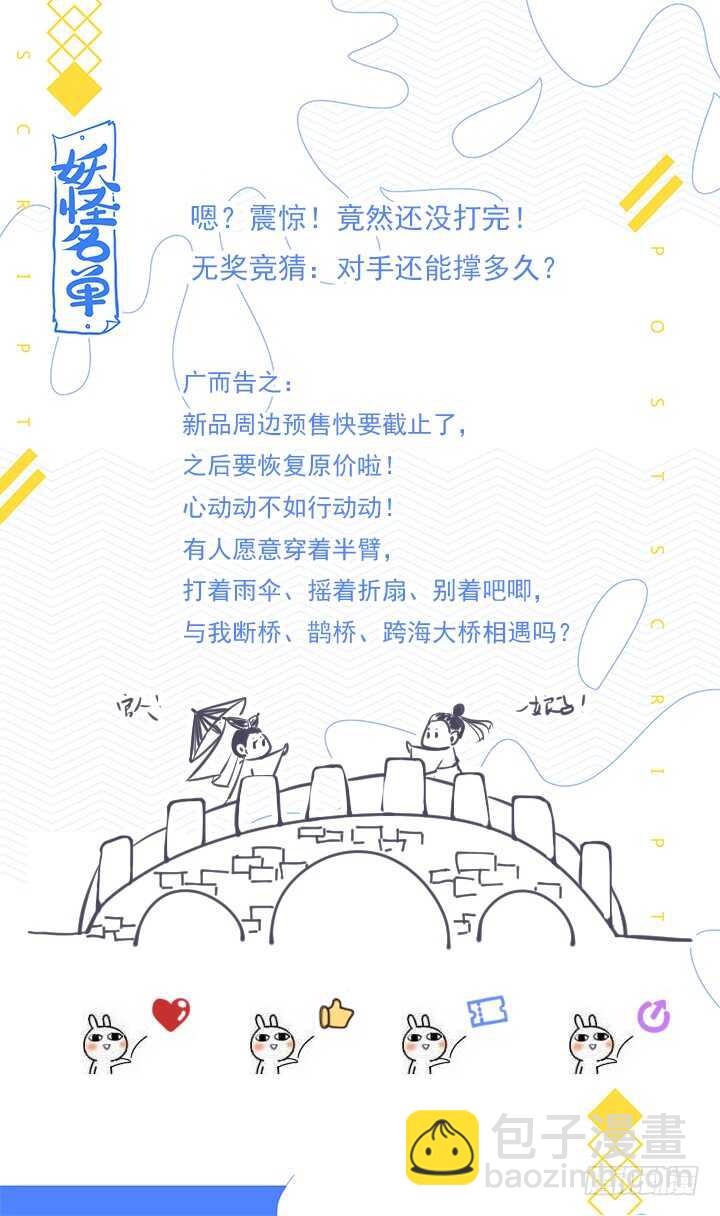 SCRIPT
妖怪名单
嗯？震惊！竟然还没打完！
无奖竞猜：对手还能撑多久？
POSTSCRIPT
广而告之：
新品周边预售快要截止了，
之后要恢复原价啦！
心动动不如行动动！
有人愿意穿着半臂，
打着雨伞、摇着折扇、别着吧唧，
与我断桥、鹊桥、跨海大桥相遇吗？
官人！
包子漫畫
baozimh.com